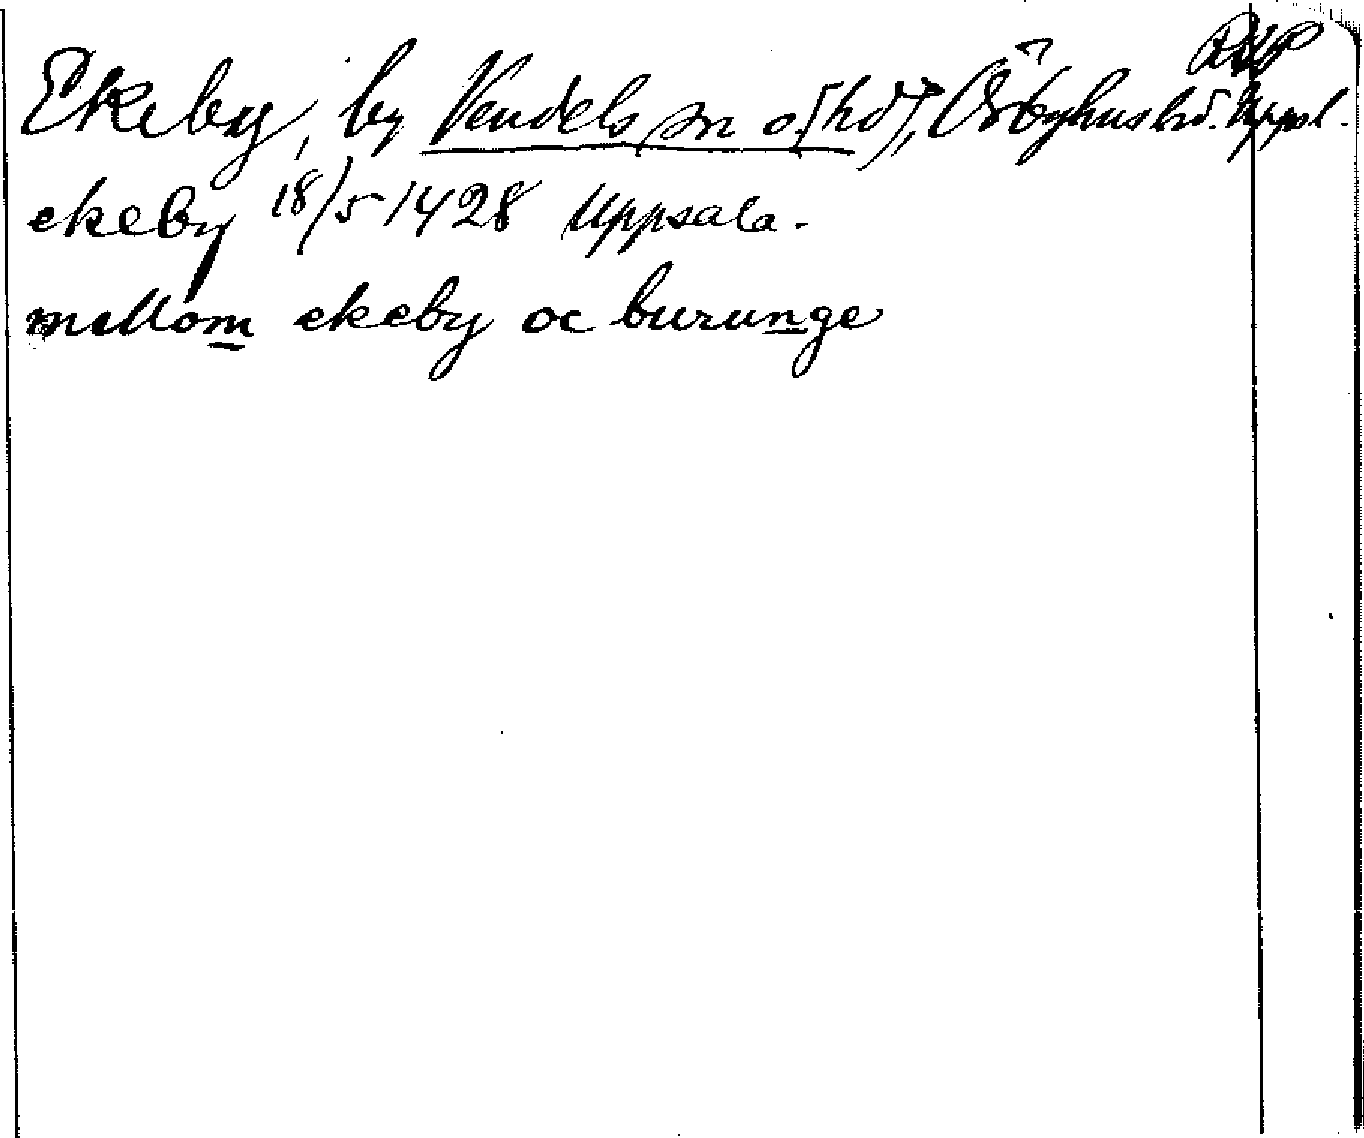 RAP
Ekeby, by Vendels sn o. [hd], Örbyhus hd. Uppl.
ekeby 18/5 1428 Uppsala.
mellom ekeby oc burunge